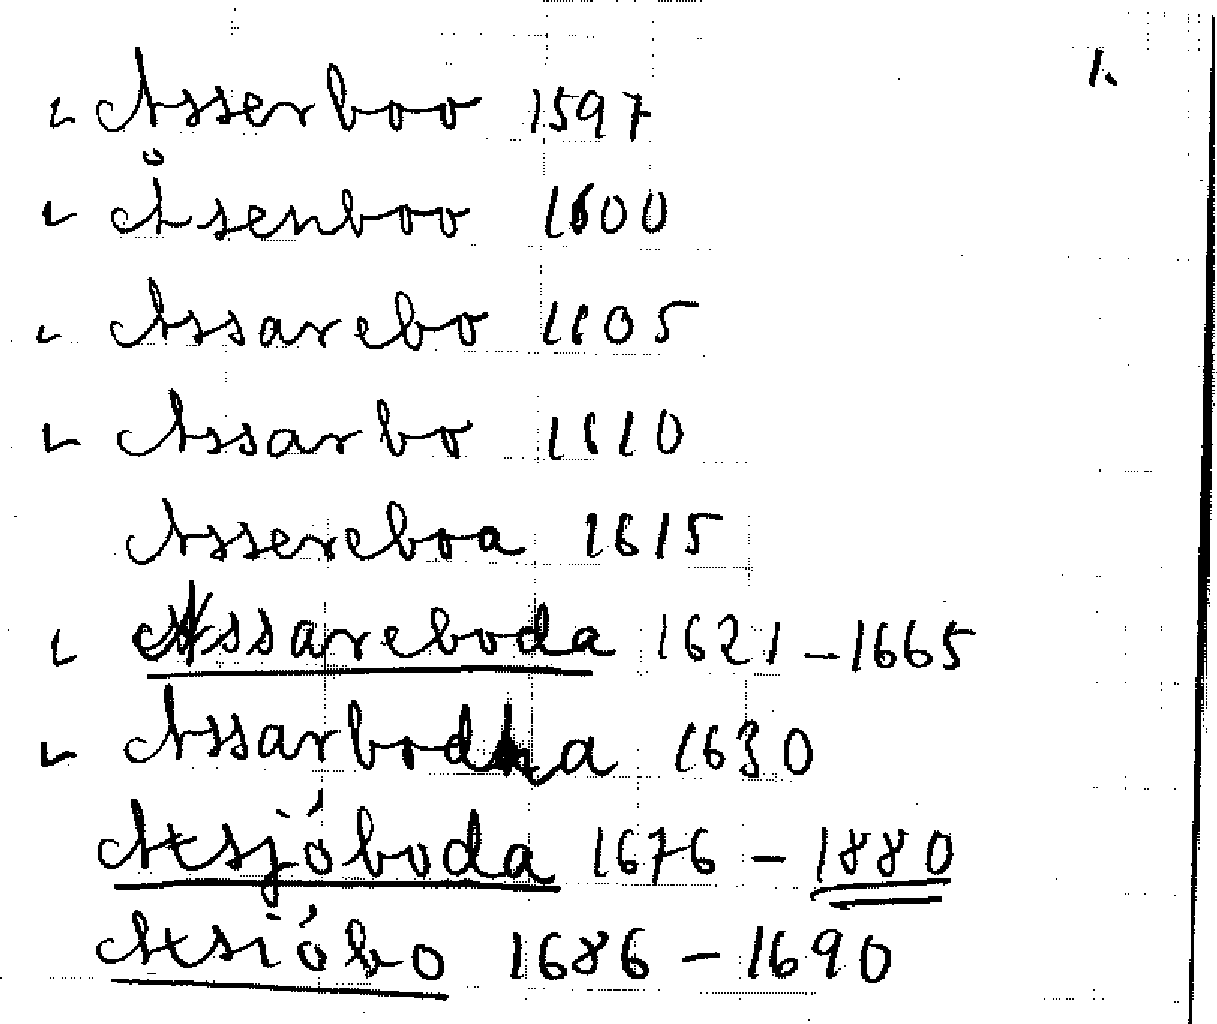 1.
Asserboo 1597
Åsenboo 1600
Assarebo 1605
Assarbo 1610
Assereboa 1615
Assareboda 1621-1665
Assarbodha 1630
Atsjóboda 1676-1880
Atsióbo 1686-1690